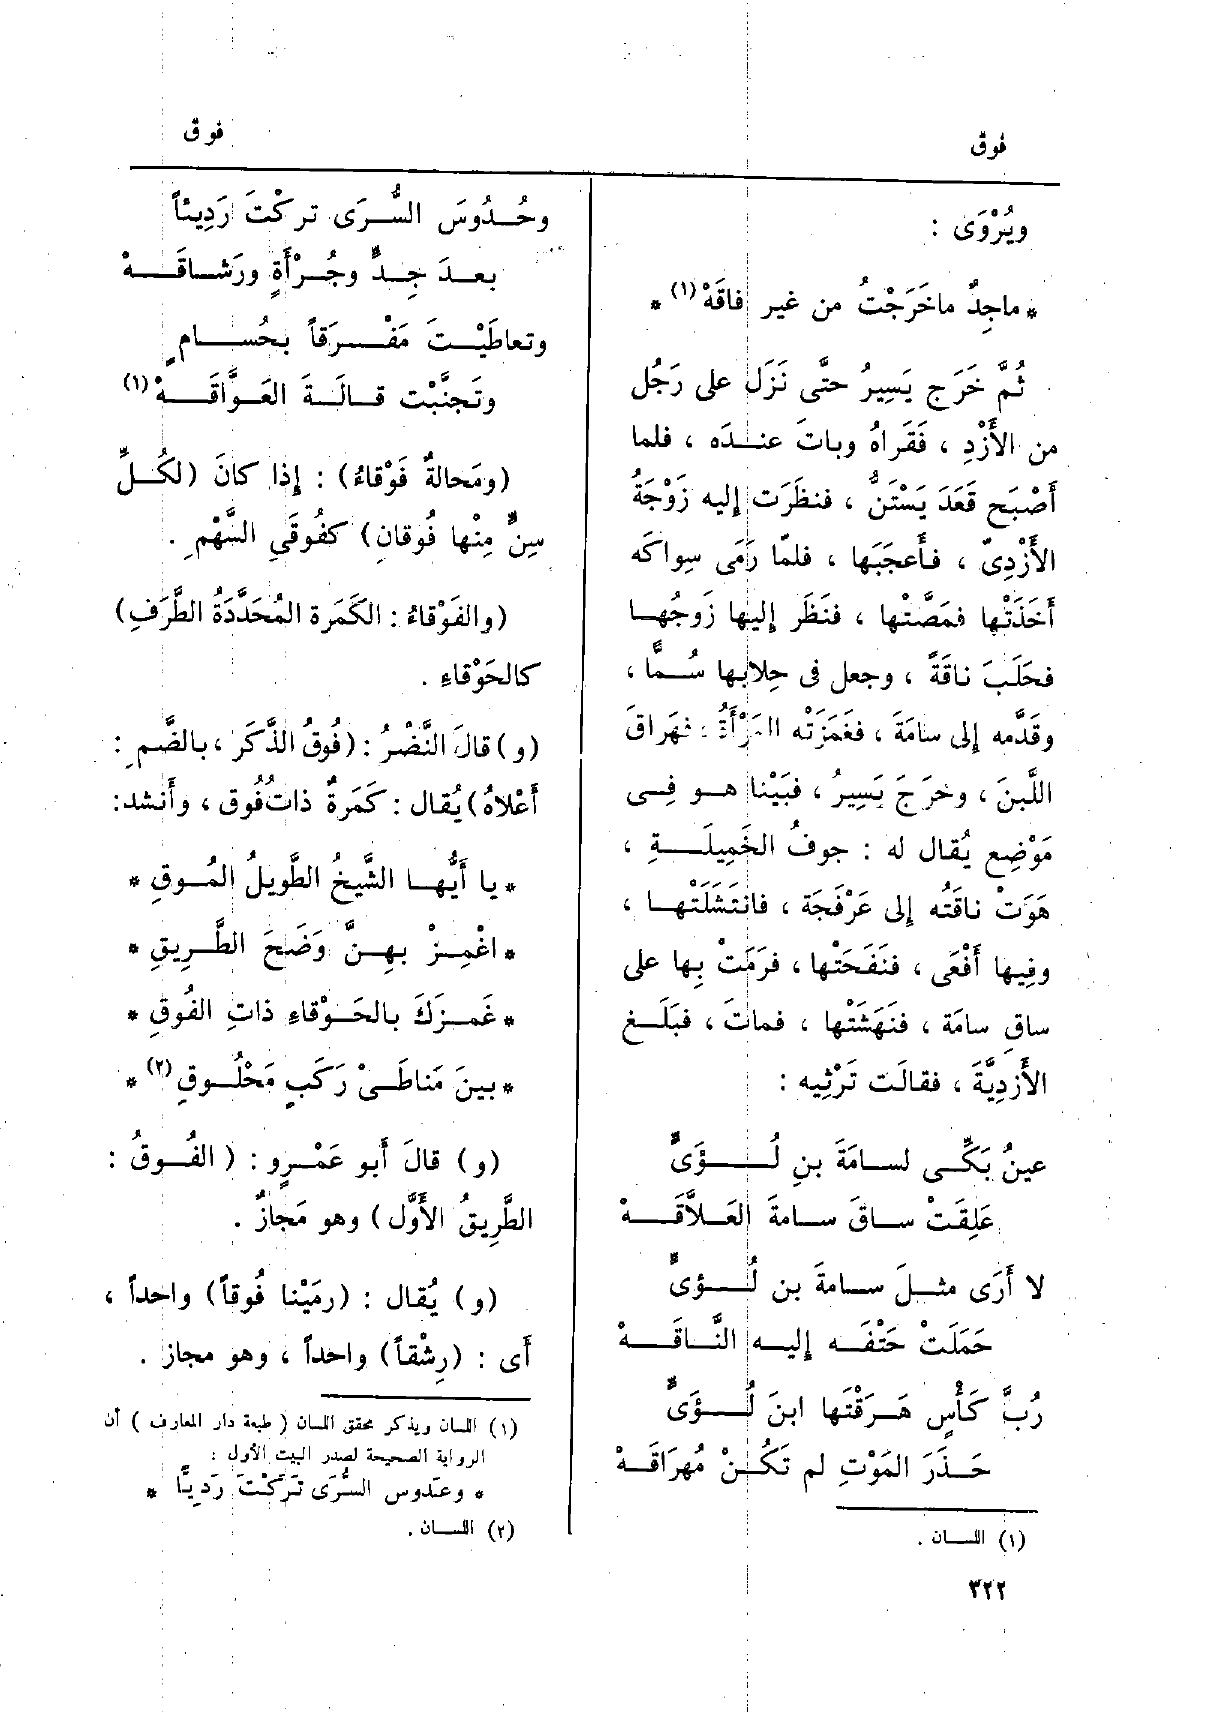 فوق
فوق
ويُرْوَى :
* ماجِدٌ ماخَرَجْتُ من غير فاقَهْ (١) *
ثُمَّ خَرَج يَسِيرُ حتَّى نَزَل على رَجُل
من الأَزْدِ ، فَقَراهُ وباتَ عنـدَه ، فلما
أَصْبَح قَعَدَ يَسْتَنُّ ، فنظَرَت إليه زَوْجَةُ
الأَزْدِىّ ، فأَعجَبَها ، فلمّا رَمَى سِواكَه
أَخَذَتْها فمَصَّتْها ، فنَظَر إليها زَوجُهـا
فحَلَبَ ناقَةً ، وجعل فى حِلابها سُـمًّا ،
وقَدَّمه إلى سامَةَ ، فغَمَزَتْه المَرْأَةُ ، فهَراقَ
اللَّبنَ ، وخرَجَ يَسِيرُ ، فبَيْنا هـو فِـى
مَوْضِع يُقال له : جوفُ الخَمِيلَـةِ ،
هَوَتْ ناقَتُه إلى عَرْفَجَة ، فانْتَشَلَتْهـا ،
وفِيها أَفْعَى ، فنَفَحَتْها ، فرَمَتْ بِها على
ساقِ سامَة ، فنَهَشَتْها ، فماتَ ، فبَلَـغ
الأَزدِيَّةَ ، فقالَت تَرْثِيه :
عينُ بَكِّـى لسـامَةَ بنِ لُـــؤَىٍّ
عَلِقَتْ سـاقَ سـامةَ العَـلاَّقَــهْ
لا أَرَى مثـلَ سـامةَ بن لُـــؤىٍّ
حَمَلَتْ حَتْفَـه إليـه النَّـاقَــهْ
رُبَّ كَأْسٍ هَـرَقْتَها ابنَ لُـــؤَىٍّ
حَـذَرَ المَوْتِ لم تَكُـنْ مُهرَاقَـهْ
(١) اللسـان .
٣٢٢
وحُـدُوسَ السُّـرَى تركْتَ رَدِيئاً
بعـدَ جِـدٍّ وجُـرْأَةٍ ورَشـاقَــهْ
وتعاطَيْـتَ مَفْـرَقاً بـحُســامٍ
وتَجنَّبْت قـالَـةَ العَـوَّاقَــهْ (١)
(ومَحالةٌ فَوْقاءُ) : إِذا كانَ (لكُـلِّ
سِنٍّ مِنْها فُوقان) كفُوقَىِ السَّهْمِ .
(والفَوْقاءُ : الكَمَرة المُحَدَّدَةُ الطَّرَفِ)
كالحَوْقاءِ .
(و) قالَ النَّضْرُ : (فُوقُ الذَّكَر ، بالضَّمِ :
أَعْلاهُ) يُقال : كَمَرةٌ ذاتُ فُوق ، وأَنشد:
* يا أَيُّهـا الشَّيخُ الطَّويلُ المُـوقِ *
* اغْمِـزْ بـهِـنَّ وَضَحَ الطَّـرِيقِ *
* غَمـزَكَ بالحَـوْقاءِ ذاتِ الفُوقِ *
* بينَ مَناطَـىْ رَكَبٍ مَحْلُـوقِ (٢) *
(و) قالَ أَبو عَمْـرٍو : (الفُـوقُ :
الطَّرِيقُ الأَوَّل) وهو مَجازٌ .
(و) يُقال : (رمَيْنا فُوقاً) واحداً ،
أى : (رِشْقاً) واحداً ، وهو مجاز .
(١) اللسان ويذكر محقق اللسان ( طبعة دار المعارف ) أن
الرواية الصحيحة لصدر البيت الأول :
* وعَدوس السُّرَى تَرَكْتَ رَدِيًّا *
(٢) اللسـان .